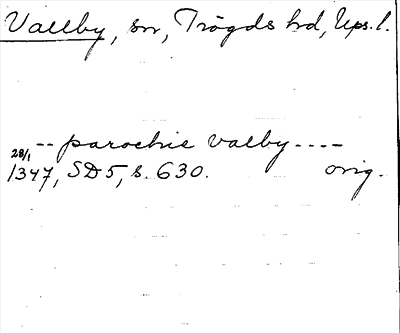 Vallby, sn, Trögds hd, Ups. l.
-- parochie valby ----
28/1
1347, SD5, s. 630. orig.